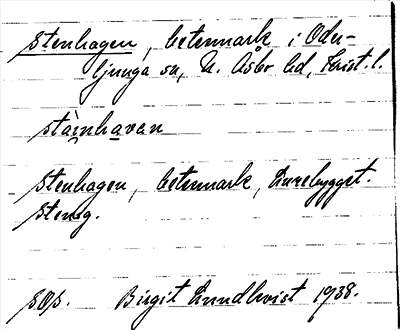 Stenhagen, betesmark i Oder-
ljunga sn, N. Åsbo hd, Krist. l.
stàinhavan
Stenhagen, betesmark, Lurebygget.
Stenig.
s.o.s. Birgit Lundkvist 1938.